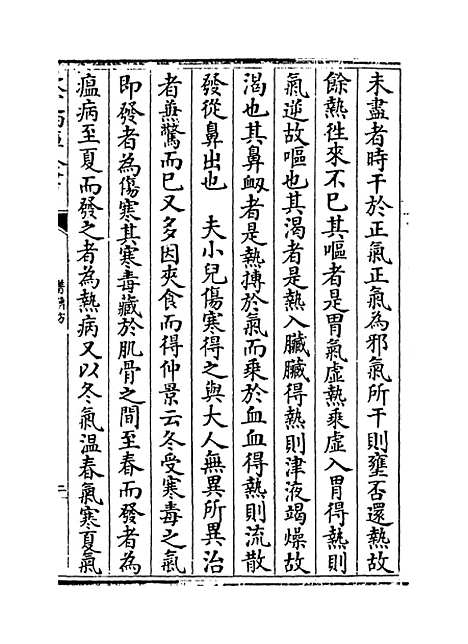 未盡者時干於正氣正氣為邪氣所干則壅否還熱故
餘熱徃來不已其嘔者是胃氣虚熱乘虚入胃得熱則
氣逆故嘔也其渴者是熱入臟臟得熱則津液竭燥故
渴也其鼻衂者是熱搏於氣而乘於血血得熱則流散
發從鼻出也　夫小兒傷寒得之與大人無異所異治
者兼驚而已又多因夾食而得仲景云冬受寒毒之氣
即發者為傷寒其寒毒藏於肌骨之間至春而發者為
瘟病至夏而發之者為熱病又以冬氣温春氣寒夏氣